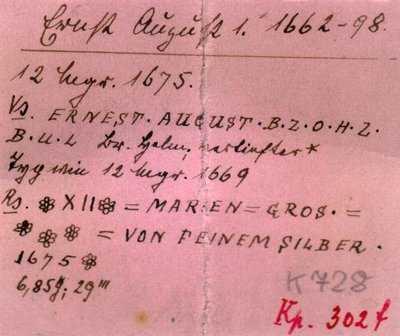 Ernst August 1. 1662-98.
12 Mgr. 1675.
Vs. ERNEST · AUGUST · B · Z · O · H · Z ·
B · U · L Br. Helm, verlieften *
Typ wie 12 Mgr. 1669
Rs. ❀ XII ❀ = MARIEN = GROS · =
❀ ❀ ❀ = VON FEINEM SILBER ·
1675 ❀
6,85 g; 29 mm
K 728
Kp. 302 f